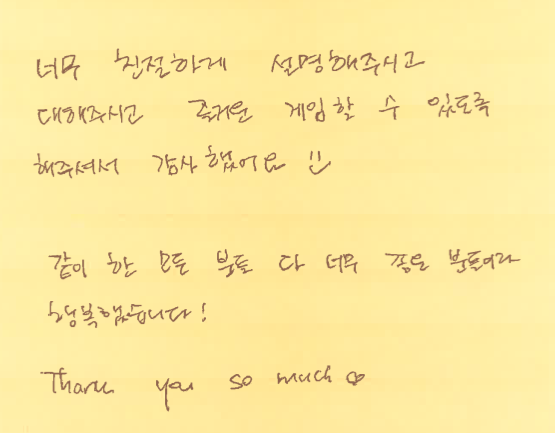 너무 친절하게 설명해주시고
대해주시고 즐거운 게임할 수 있도록
해주셔서 감사했어요 !!
같이 한 모든 분들 다 너무 좋은 분들이라
행복했습니다!
Thank you so much ♡